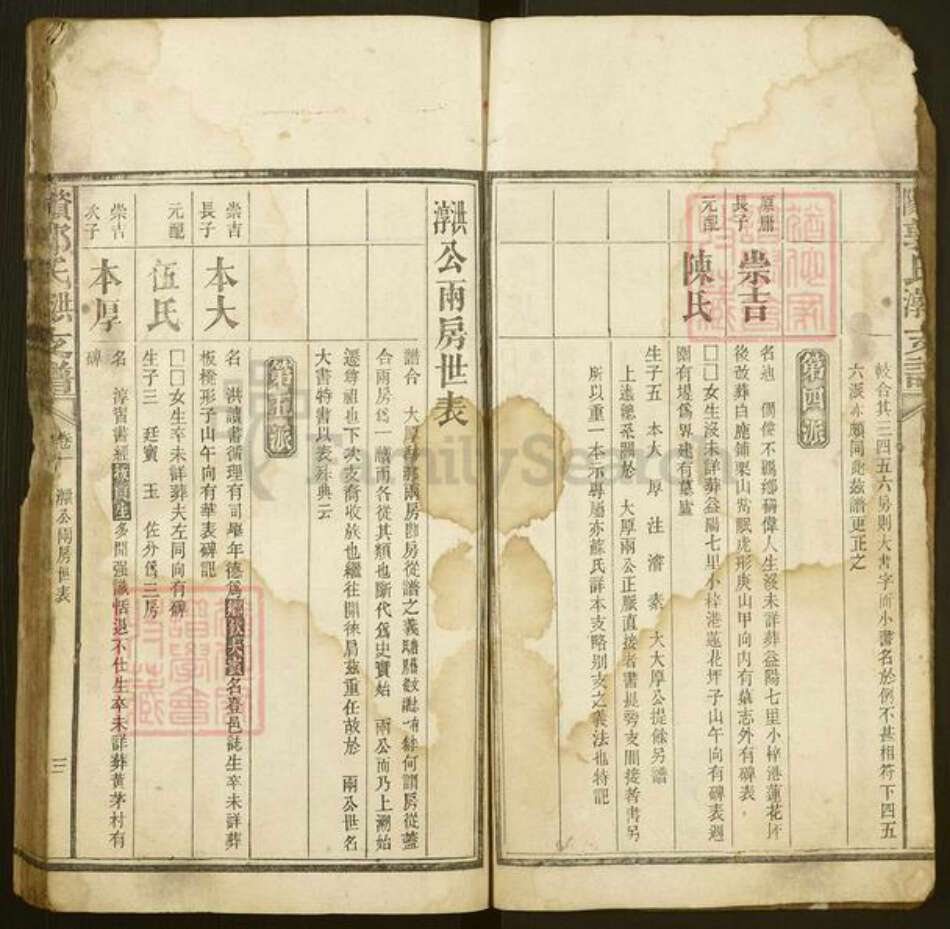 較合其三四五六房則大書字而小書名於例不甚相符下四五
六派亦願同此茲譜更正之
第四派
原庸
長子
崇吉
名迪
偶偉不羈鄉稱偉人生沒未詳葬益陽七里小梓港蓮花坪
後改葬白鹿鋪栗山灣眠虎形庚山甲向內有墓志外有碑表
元配
陳氏
□□女生沒未詳葬益陽七里小梓港蓮花坪子山午向有碑表週
圍有堤為界建有墓廬
生子五 本大 厚 注 濬 素 大大厚公提條另譜
上遠總系關於 大厚兩公正脈直接者書提旁支間接者書另
所以重一本示專屬亦蘇氏詳本支略別支之義法也特記
洪淳公兩房世表
譜合 大厚
兩房
房從譜之義
何謂房從蓋
合兩房為一譜而各從其類也斷代為史實始 兩公而乃上溯始
遷尊祖也下次支裔收族也繼往開徠肩茲重任故於 兩公世名
大書特書以表殊典云
第五派
崇吉
長子
本大
名 洪讀書循理有司舉年德為鄉飲大賓名登邑誌生卒未詳葬
板櫈形子山午向有華表碑記
元配
伍氏
□□女生卒未詳葬夫左同向有碑
生子三 廷寶 玉 佐分為三房
崇吉
次子
本厚
名 淳習書經
生多聞强識恬退不仕生卒未詳葬黃茅村有
碑
郭氏洪
支譜
卷十
公兩房世表
三
FamilySearch